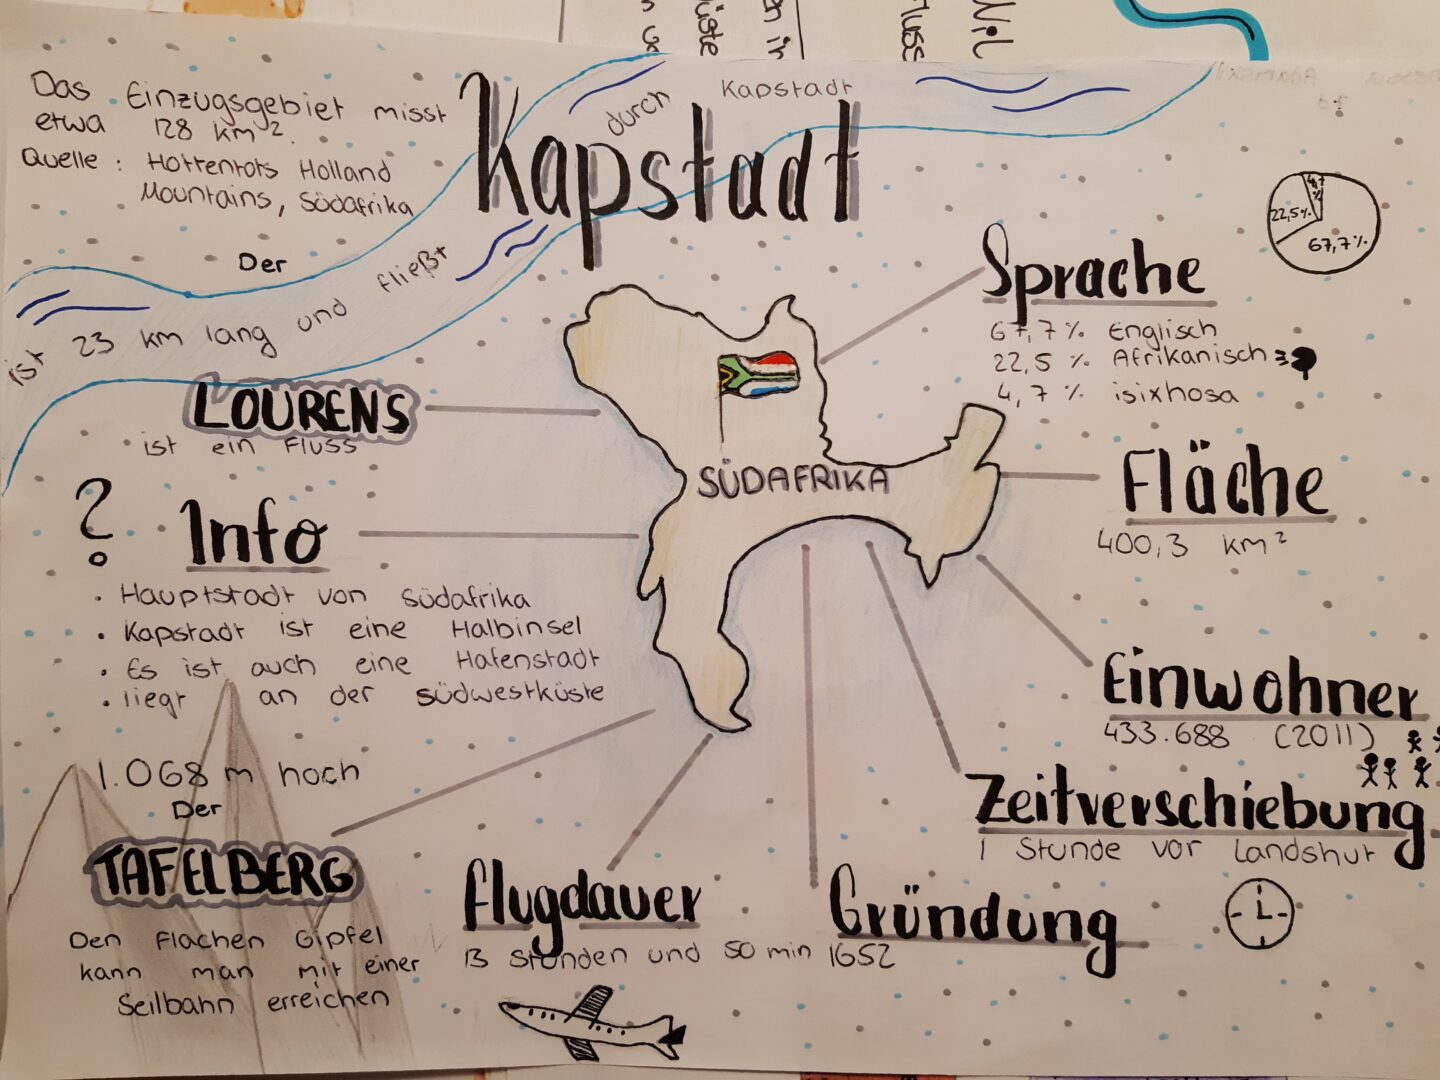 Nil
Kapstadt
Das Einzugsgebiet misst
etwa 128 km².
Quelle: Hottentots Holland
Mountains, Südafrika
Der
LOURENS
ist 23 km lang und fließt durch Kapstadt
ist ein Fluss
?
Info
• Hauptstadt von Südafrika
• Kapstadt ist eine Halbinsel
• Es ist auch eine Hafenstadt
• liegt an der südwestküste
1.068 m hoch
Der
TAFELBERG
Den Flachen Gipfel
kann man mit einer
Seilbahn erreichen
SÜDAFRIKA
Sprache
67,7 % Englisch
22,5 % Afrikanisch
4,7 % isixhosa
4,7 %
22,5 %
67,7 %
Fläche
400,3 km²
Einwohner
433.688 (2011)
Zeitverschiebung
1 Stunde vor Landshut
Gründung
1652
Flugdauer
13 Stunden und 50 min